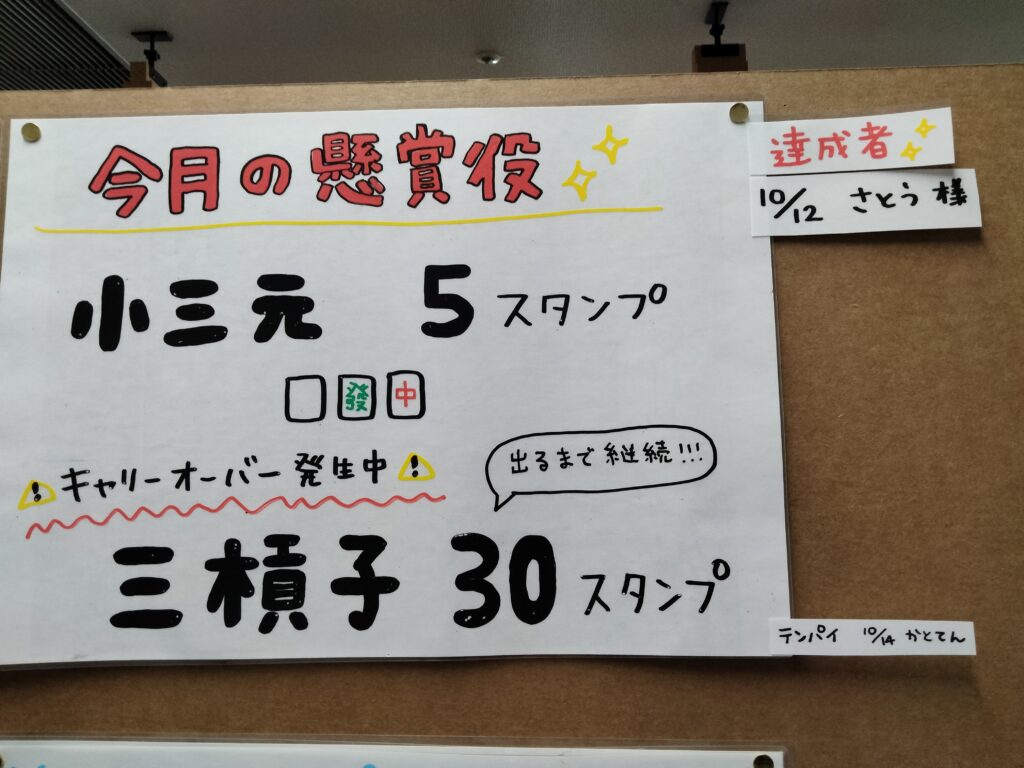 今月の懸賞役
達成者
10/12 さとう 様
小三元 5スタンプ
發 中
キャリーオーバー発生中
出るまで継続!!!
三槓子 30スタンプ
テンパイ 10/14 かとてん